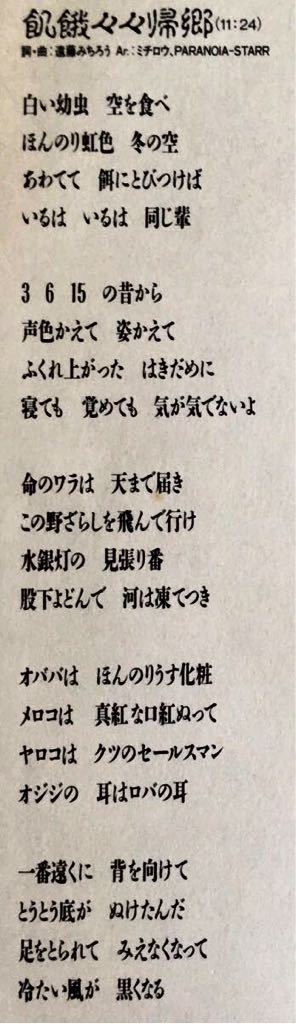 飢餓々々帰郷(11:24)
詞・曲：遠藤みちろう Ar.：ミチロウ、PARANOIA-STARR
白い幼虫　空を食べ
ほんのり虹色　冬の空
あわてて　餌にとびつけば
いるは　いるは　同じ輩
3　6　15　の昔から
声色かえて　姿かえて
ふくれ上がった　はきだめに
寝ても　覚めても　気が気でないよ
命のワラは　天まで届き
この野ざらしを飛んで行け
水銀灯の　見張り番
股下よどんで　河は凍てつき
オババは　ほんのりうす化粧
メロコは　真紅な口紅ぬって
ヤロコは　クツのセールスマン
オジジの　耳はロバの耳
一番遠くに　背を向けて
とうとう底が　ぬけたんだ
足をとられて　みえなくなって
冷たい風が　黒くなる